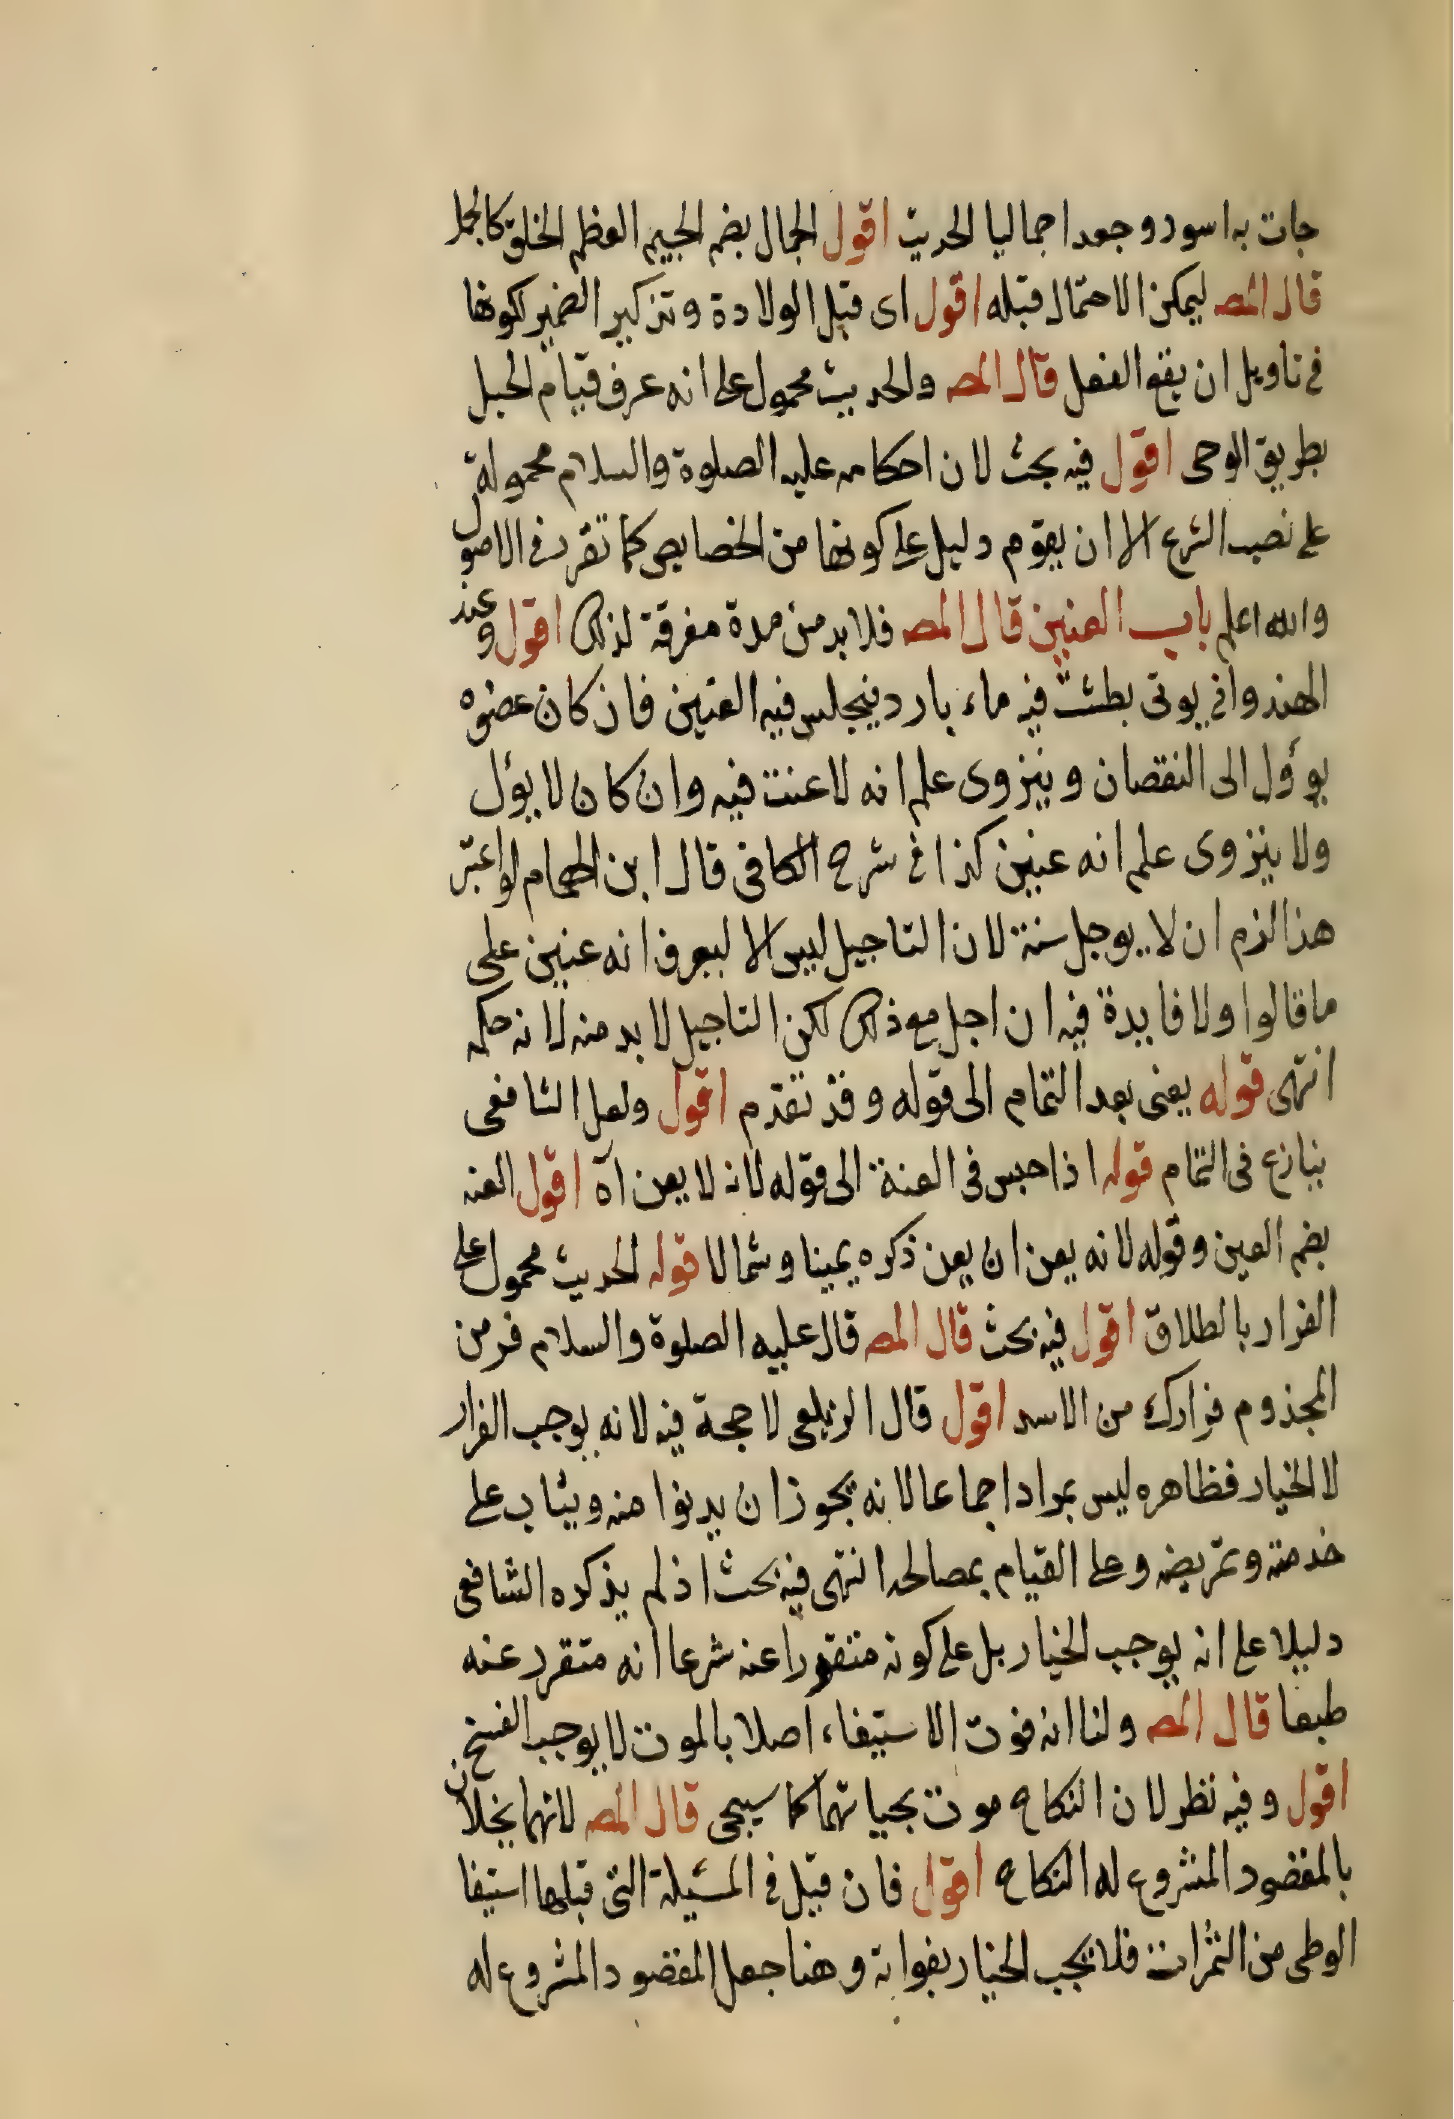 جات به اسود وجعدا جماليا الحديث اقول الجمال بضم الجيم العظم الخلق كالجمل
قال المصـ ليمكن الاحتمال قبله اقول اى قبل الولادة وتذكير الضمير لكونها
فى تاويل ان يقع الفعل قال المصـ والحديث محمول على انه عرف قيام الحبل
بطريق الوحى اقول فيه بحث لان احكامه عليه الصلوة والسلام محمولة
على نصب الشرع الا ان يقوم دليل على كونها من الخصايص كما تقرر فى الاصول
والله اعلم باب العنين قال المصـ فلا بد من مدة معرفة لذلك اقول وعند
الهندوانى يوتى بطشت فيه ماء بارد فيجلس فيه العنين فان كان عضوه
يوؤل الى النقصان وينزوى علم انه لا عنت فيه وان كان لا يؤل
ولا ينزوى علم انه عنين كذا فى شرح الكافى قال ابن الهمام لو اعتبر
هذا لزم ان لا يوجل سنة لان التاجيل ليس الا ليعرف انه عنين على
ما قالوا ولا فايدة فيه ان اجل مع ذلك لكن التاجيل لا بد منه لانه حكمه
انتهى قوله يعنى بعد التمام الى قوله وقد تقدم اقول ولعل الشافعى
ينازع فى التمام قوله اذا حبس فى العنة الى قوله لانه لا يعن اه اقول العنه
بضم العين وقوله لانه يعن ان يعن ذكره يمينا وشمالا قوله الحديث محمول على
الفرار بالطلاق اقول فيه بحث قال المصـ قال عليه الصلوة والسلام فر من
المجذوم فرارك من الاسد اقول قال الزيلعى لا حجة فيه لانه يوجب الفرار
لا الخيار فظاهره ليس بمراد اجماعا لانه يجوز ان يدنوا منه ويثاب على
خدمته وتمريضه وعلى القيام بمصالحه انتهى فيه بحث اذ لم يذكره الشافعى
دليلا على انه يوجب الخيار بل على كونه متقررا عنه شرعا انه متقرر عنه
طبعا قال المصـ ولنا انه فوت الاستيفاء اصلا بالموت لا يوجب الفسخ
اقول وفيه نظر لان النكاح موت بحياتهما كما سيجى قال المصـ لانهما يخلان
بالمقصود المشروع له النكاح اقول فان قيل فى المسئيلة التى قبلها استيفا
الوطى من الثمرات فلا يجب الخيار بفواته وهنا جعل المقصود المشروع له